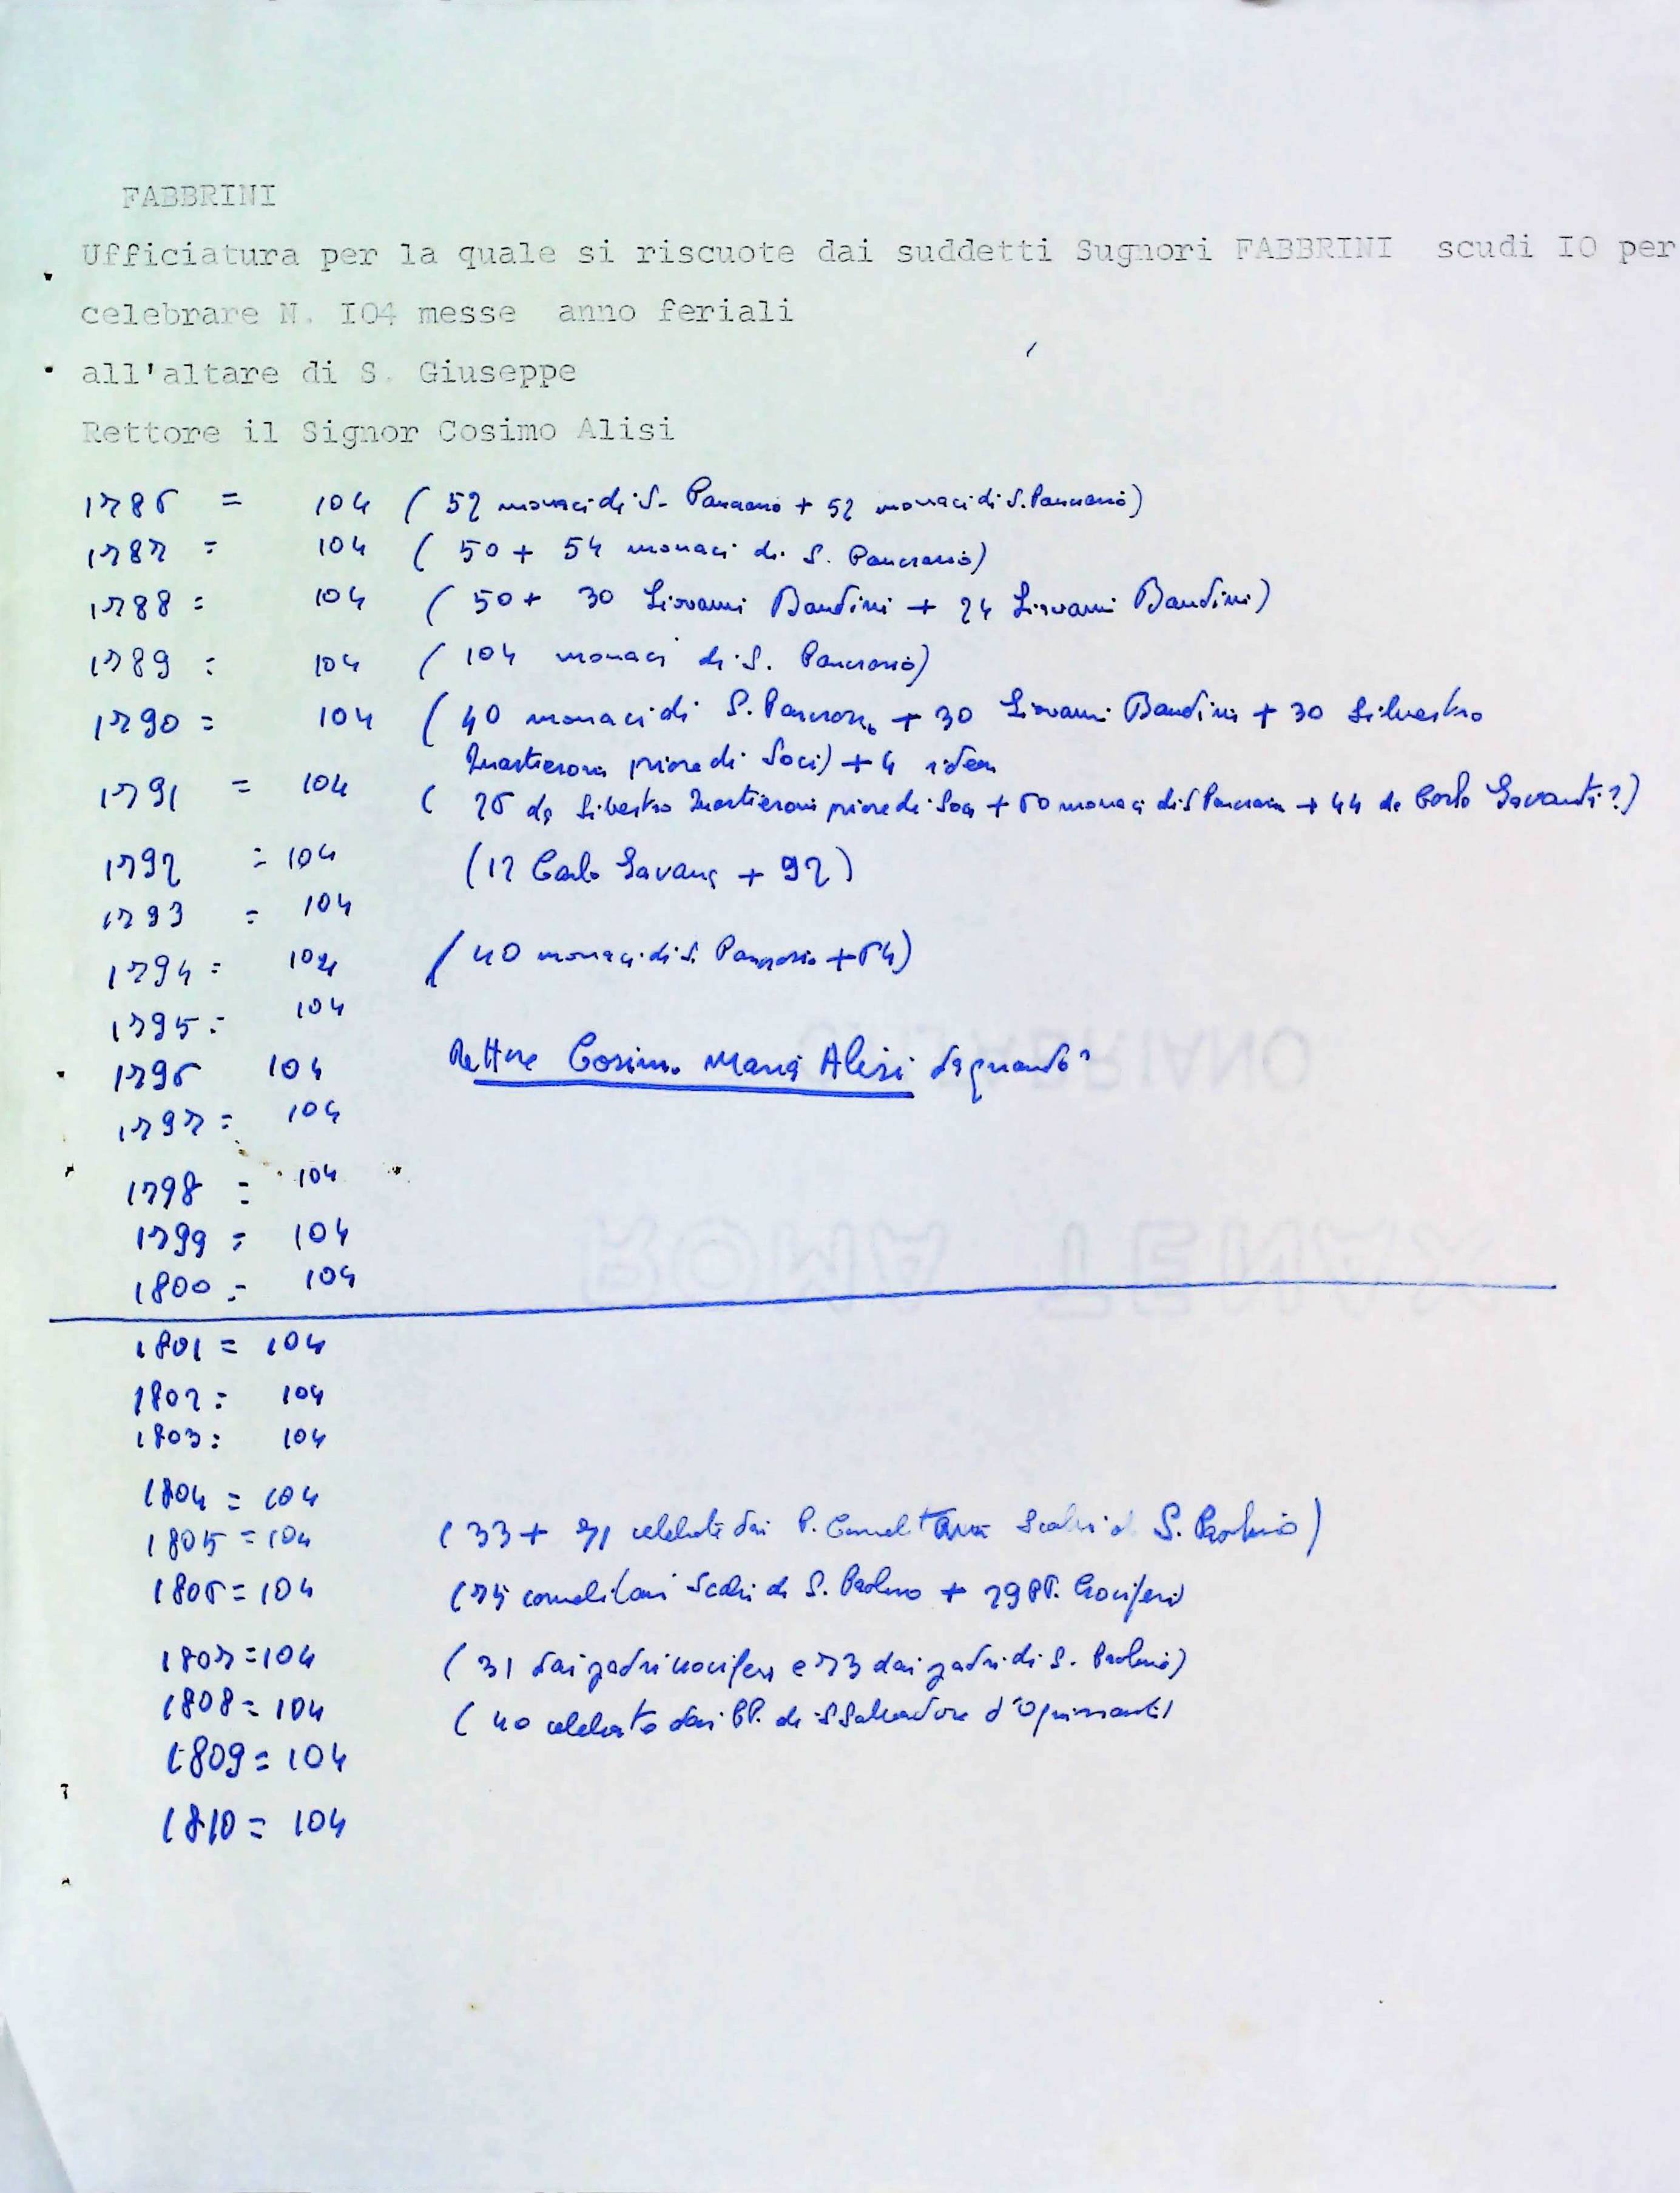 FABBRINI
Ufficiatura per la quale si riscuote dai suddetti Sugnori FABBRINI scudi IO per
celebrare N. IO4 messe anno feriali
all'altare di S. Giuseppe
Rettore il Signor Cosimo Alisi
1786 = 104 (52 monaci di S. Pancrazio + 52 monaci di S. Pancrazio)
1787 = 104 (50 + 54 monaci di S. Pancrazio)
1788 = 104 (50 + 30 Giovanni Bandini + 24 Giovanni Bandini)
1789 = 104 (104 monaci di S. Pancrazio)
1790 = 104 (40 monaci di S. Pancrazio + 30 Giovanni Bandini + 30 Silvestro
priore di Soci) + 4 idem
1791 = 104 (da Silvestro priore di Soci + 60 monaci di S Pancrazio + 44 da Carlo
1792 = 104 (12 Carlo + 92)
1793 = 104
1794 = 104 (40 monaci di S. Pancrazio + 64)
1795 = 104
1796 104 Rettore Cosimo Maria Alisi da quando?
1797 = 104
1798 = 104
1799 = 104
1800 = 104
1801 = 104
1802 = 104
1803 = 104
1804 = 104
1805 = 104 (33 + 71 celebrate dai P. Scalzi di S. Paolino)
1806 = 104 (75 carmelitani Scalzi di S. Paolino + 29 PP. Crociferi)
1807 = 104 (31 dai padri crociferi e 73 dai padri di S. Paolino)
1808 = 104 (40 celebrate dai PP. di S Salvadore d'Ognissanti)
1809 = 104
1810 = 104
FABRIANO
ROMA TENAX